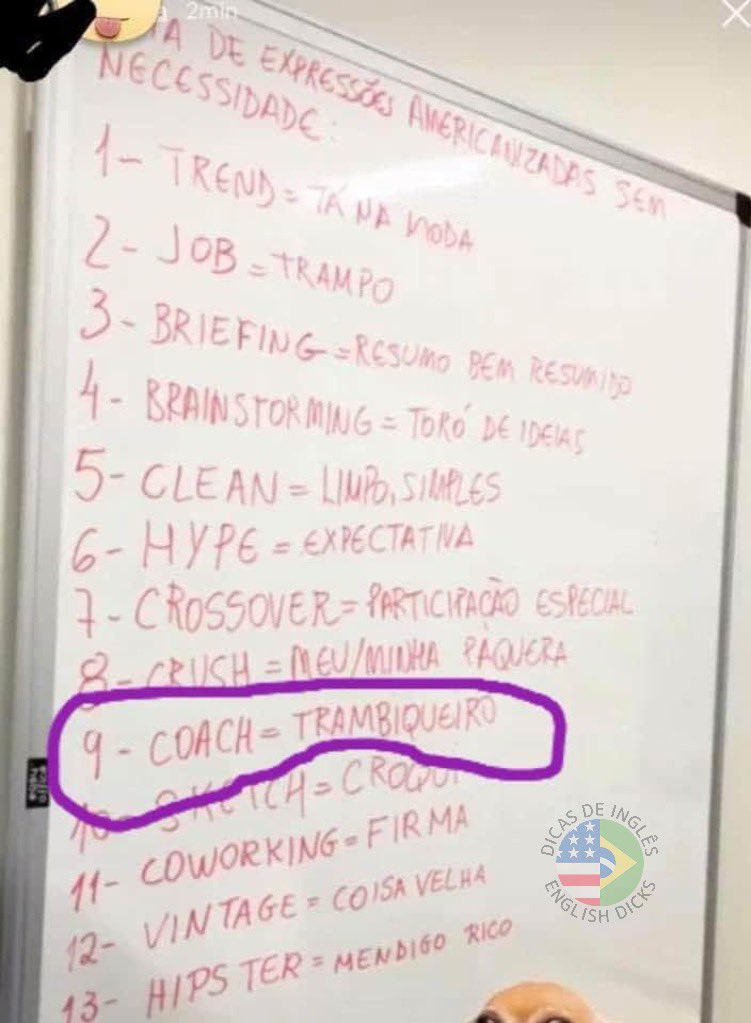 2min
DE EXPRESSÕES AMERICANIZADAS SEM
NECESSIDADE:
1- TREND = TÁ NA MODA
2- JOB = TRAMPO
3- BRIEFING = RESUMO BEM RESUMIDO
4- BRAINSTORMING = TORÓ DE IDEIAS
5- CLEAN = LIMPO, SIMPLES
6- HYPE = EXPECTATIVA
7- CROSSOVER = PARTICIPAÇÃO ESPECIAL
8- CRUSH = MEU/MINHA PAQUERA
9- COACH = TRAMBIQUEIRO
10- SKETCH = CROQUI
11- COWORKING = FIRMA
12- VINTAGE = COISA VELHA
13- HIPSTER = MENDIGO RICO
DICAS DE INGLÊS
ENGLISH DICKS